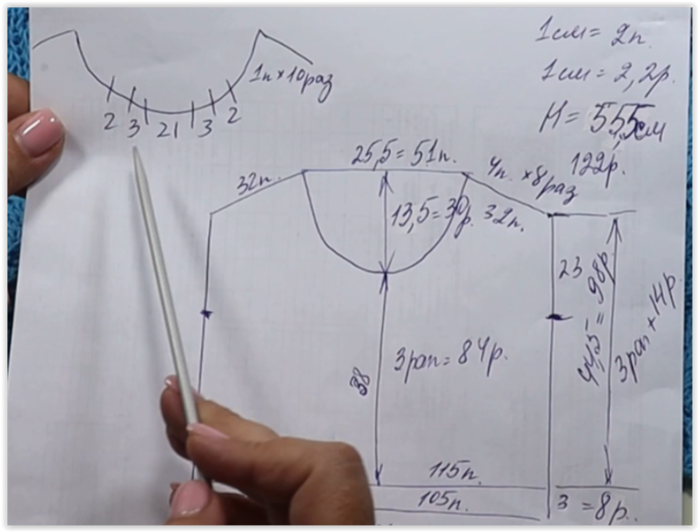 1см = 2п.
1см = 2,2р.
Н = 55,5см
122р.
1п × 10раз
2 3 21 3 2
25,5 = 51п.
32п.
4п. × 8раз
13,5 = 30р.
32п.
23
44,5 = 98р.
3рап + 14р.
38
3рап = 84р.
115п.
105п.
3 = 8р.